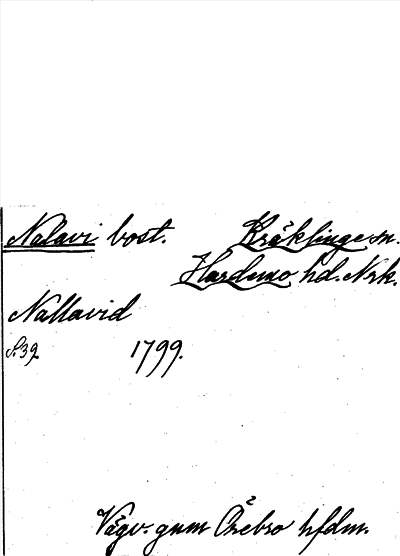 Nalavi bost. Kräklinge sn.
Hardemo hd. Nrk.
Nallavid
S. 39. 1799.
Vägv. gnm Örebro hfdm.